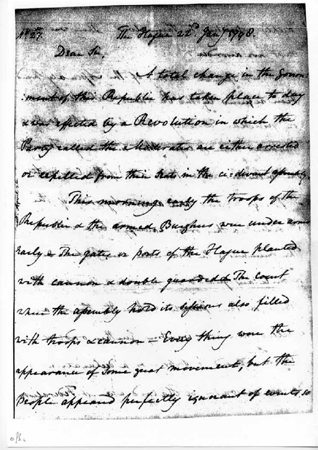 The Hague 22d Jany 1798.
Dear Sir,
A total change in the Govern
=ment of this Republic has taken place to day
& was effected by a Revolution in which the
Party called the Moderates are either arrested
or expelled from their seats in the ci-devant assembly
This morning early the troops of the
Republic & the armed Burghers were under arms
early & the gates or ports of the Hague planted
with cannon & double guarded. The Court
where the assembly held its sessions also filled
with troops & cannon = Every thing wore the
appearance of some great movement, but the
People appeared perfectly ignorant of events so